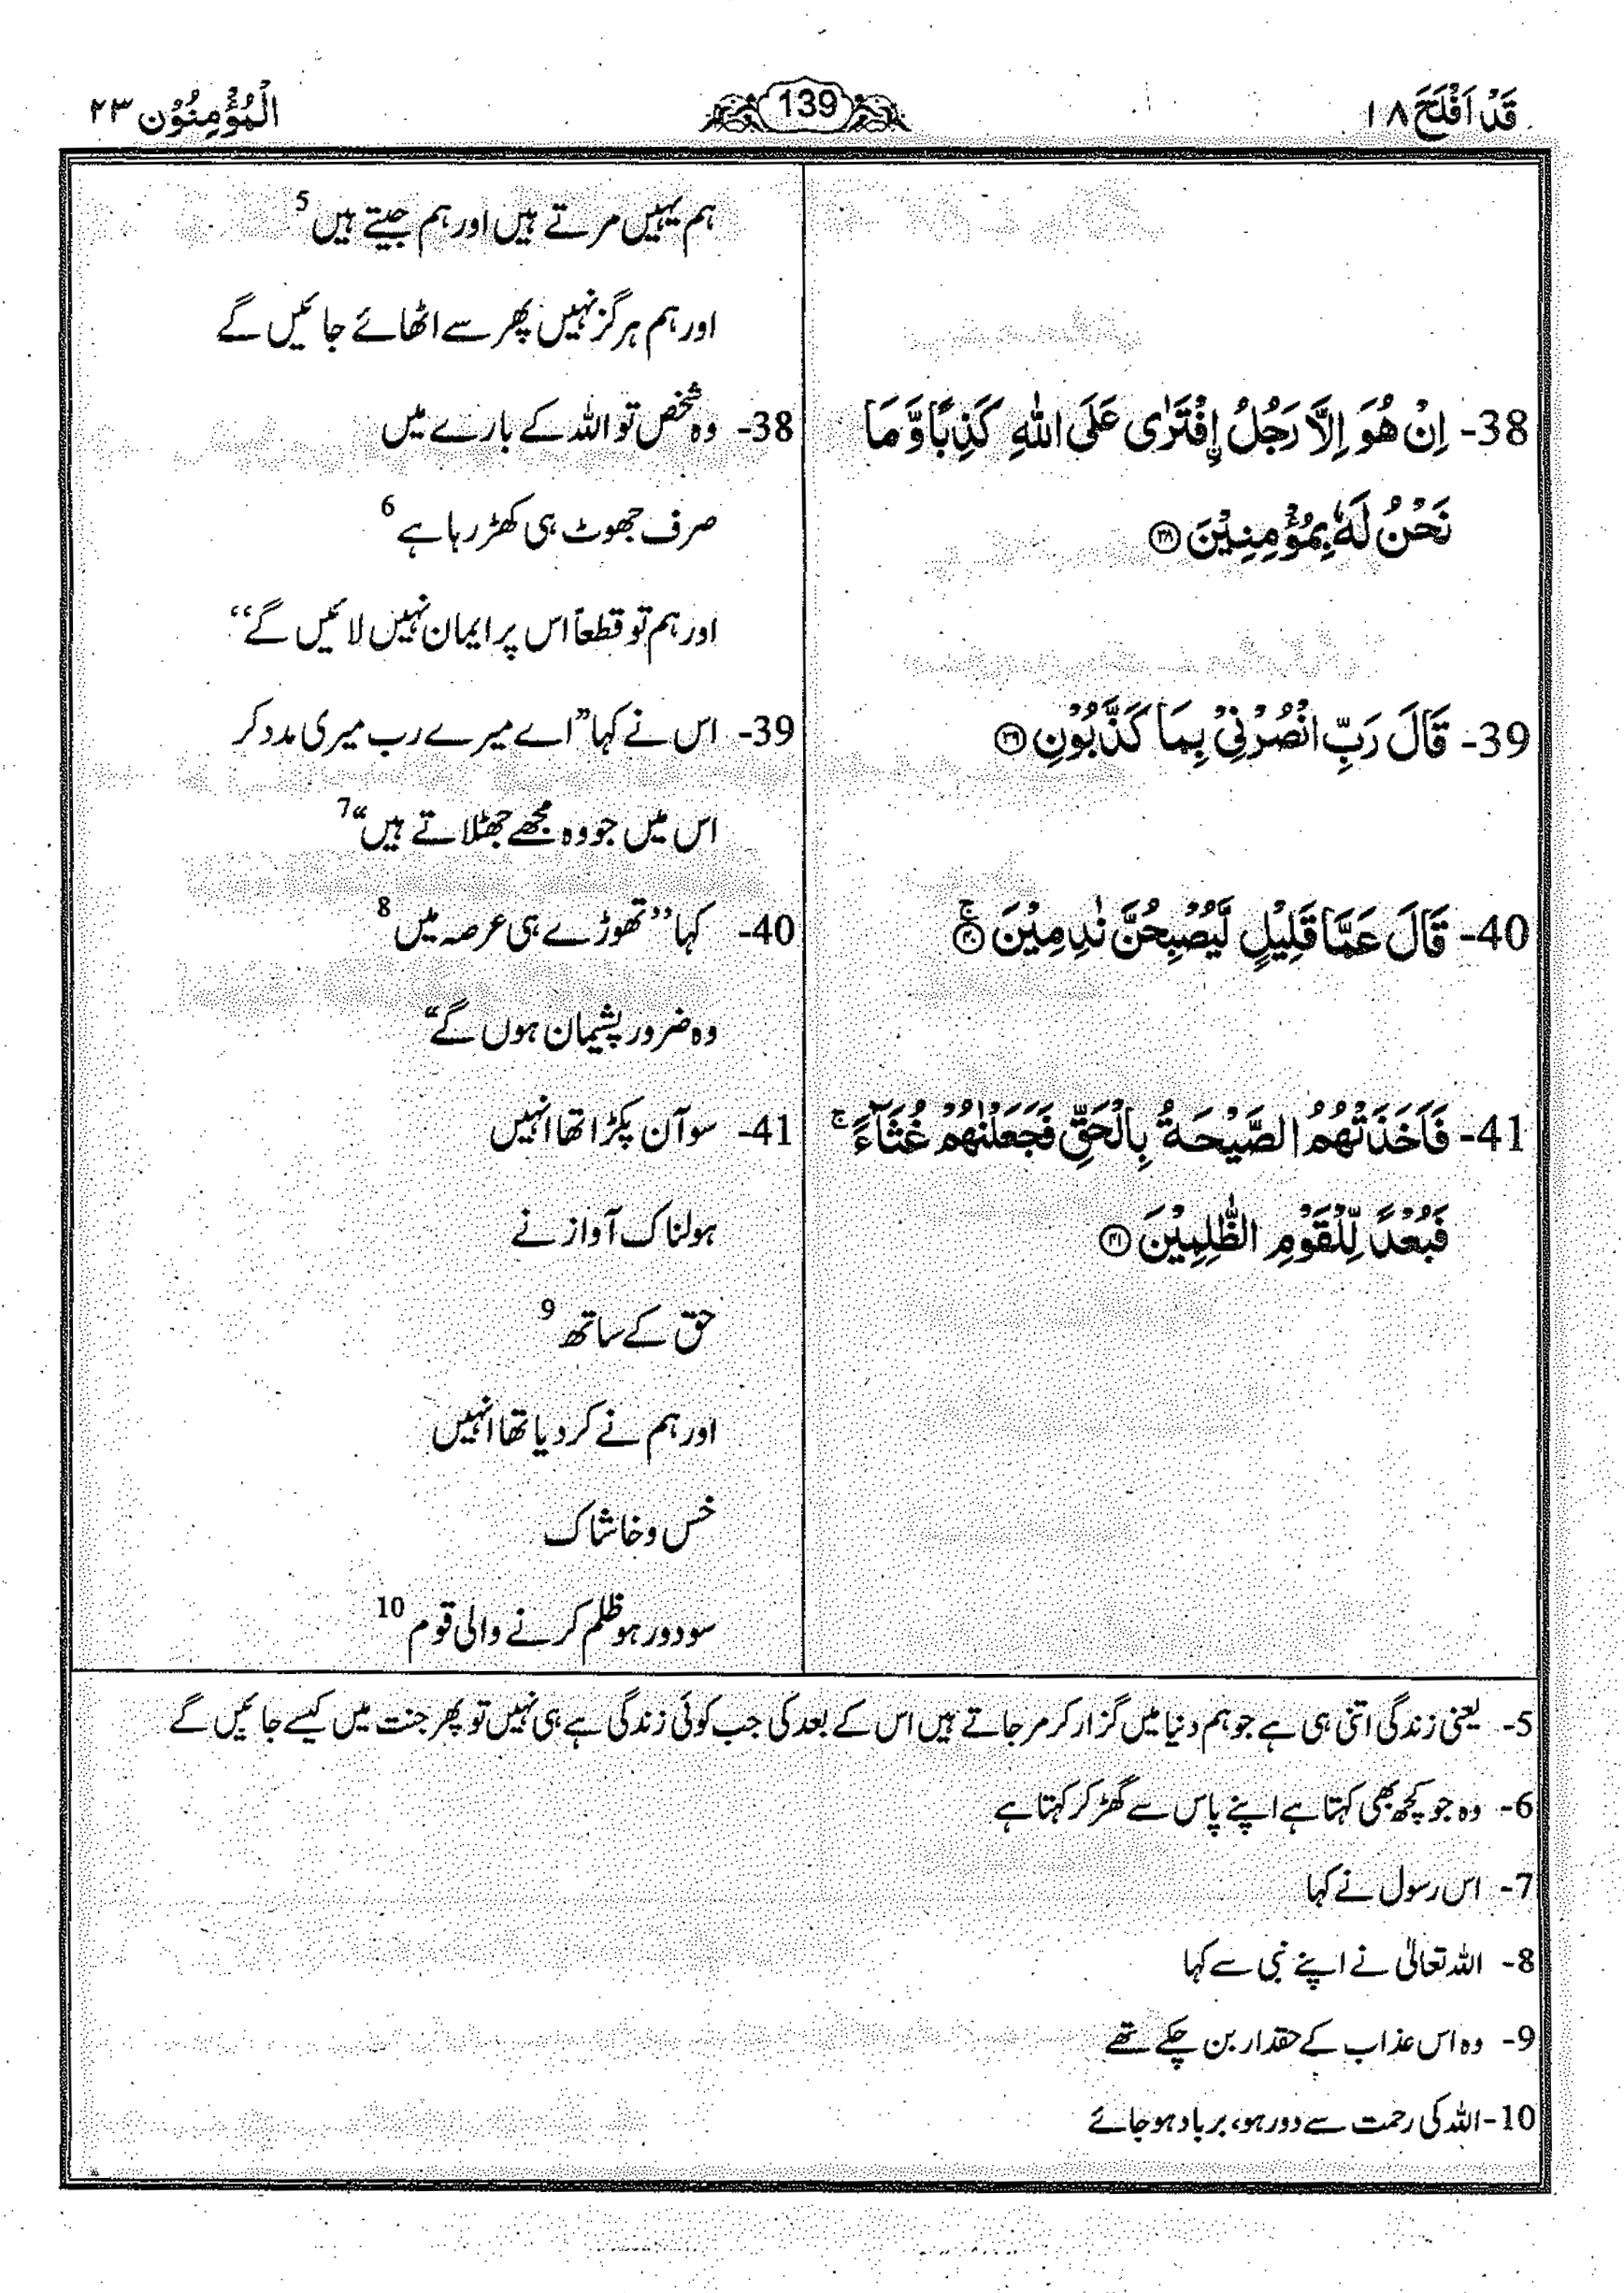 قَدْ اَفْلَحَ ۱۸
139
الْمُؤْمِنُوْن ۲۳
ہم یہیں مرتے ہیں اور ہم جیتے ہیں 5
اور ہم ہرگز نہیں پھر سے اٹھائے جائیں گے
38- اِنْ هُوَ اِلَّا رَجُلُ اِۨفْتَرٰى عَلَى اللّٰهِ كَذِبًا وَّ مَا
نَحْنُ لَهٗ بِمُؤْمِنِيْنَ ﴿۳۸﴾
38- وہ شخص تو اللہ کے بارے میں
صرف جھوٹ ہی کھڑ رہا ہے 6
اور ہم تو قطعاً اس پر ایمان نہیں لائیں گے‘‘
39- قَالَ رَبِّ انْصُرْنِىْ بِمَا كَذَّبُوْنِ ﴿۳۹﴾
39- اس نے کہا ”اے میرے رب میری مدد کر
اس میں جو وہ مجھے جھٹلاتے ہیں“ 7
40- قَالَ عَمَّا قَلِيْلٍ لَّيُصْبِحُنَّ نٰدِمِيْنَ ﴿۴۰﴾ ج
40- کہا ’’تھوڑے ہی عرصہ میں 8
وہ ضرور پشیمان ہوں گے“
41- فَاَخَذَتْهُمُ الصَّيْحَةُ بِالْحَقِّ فَجَعَلْنٰهُمْ غُثَآءً ۚ
فَبُعْدًا لِّلْقَوْمِ الظّٰلِمِيْنَ ﴿۴۱﴾
41- سو آن پکڑا تھا انہیں
ہولناک آواز نے
حق کے ساتھ 9
اور ہم نے کر دیا تھا انہیں
خس و خاشاک
سو دور ہو ظلم کرنے والی قوم 10
5- یعنی زندگی اتنی ہی ہے جو ہم دنیا میں گزار کر مر جاتے ہیں اس کے بعد کی جب کوئی زندگی ہے ہی نہیں تو پھر جنت میں کیسے جائیں گے
6- وہ جو کچھ بھی کہتا ہے اپنے پاس سے گھڑ کر کہتا ہے
7- اس رسول نے کہا
8- اللہ تعالیٰ نے اپنے نبی سے کہا
9- وہ اس عذاب کے حقدار بن چکے تھے
10- اللہ کی رحمت سے دور ہو، برباد ہو جائے